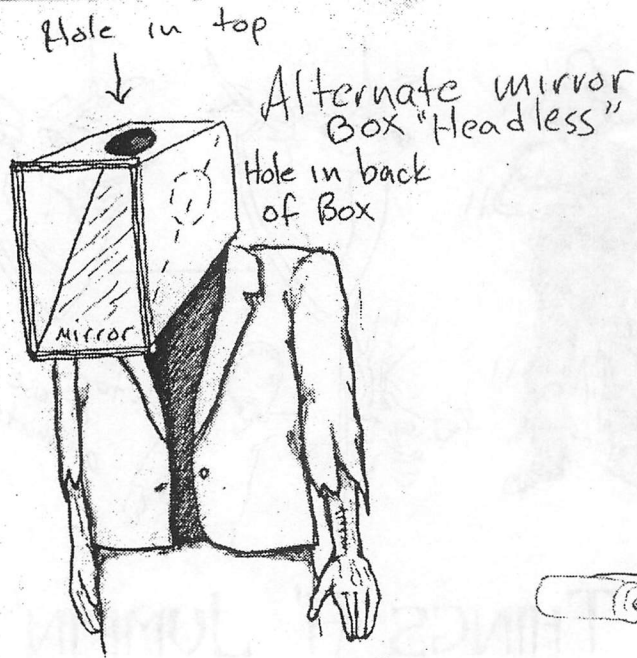 Hole in top
Alternate mirror
Box "Headless"
Hole in back
of Box
Mirror